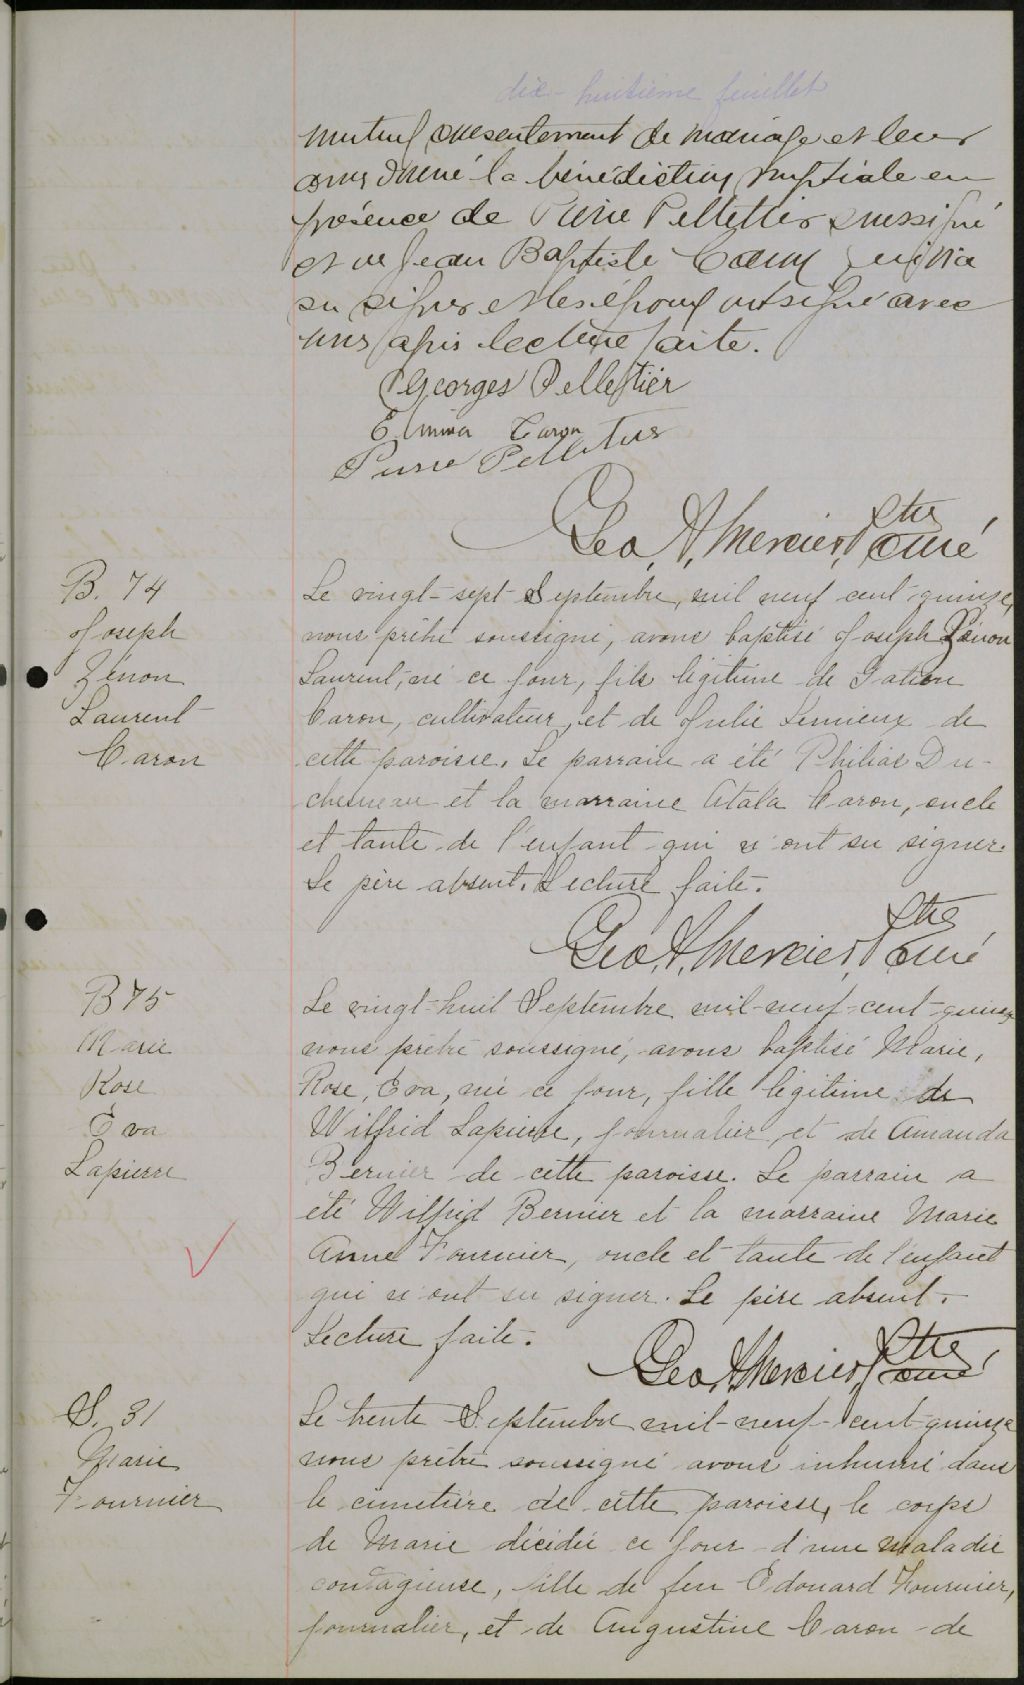 dix-huitième feuillet
mutuel consentement de mariage et leur
avons donné la bénédiction nuptiale en
présence de Pierre Pelletier soussigné
et de Jean Baptiste Caron qui n'a
su signer et les époux ont signé avec
nous après lecture faite.
Georges Pelletier
Elmina Caron
Pierre Pelletier
Geo. A. Mercier, Ptre
curé
B. 74
Joseph
Zénon
Laurent
Caron
Le vingt-sept Septembre, mil neuf cent-quinze,
nous prêtre soussigné, avons baptisé Joseph Zénon
Laurent, né ce jour, fils légitime de Gatien
Caron, cultivateur, et de Julie Lemieux de
cette paroisse. Le parrain a été Philias Du-
chesneau et la marraine Atala Caron, oncle
et tante de l'enfant qui n'ont su signer.
Le père absent. Lecture faite.
Geo. A. Mercier, Ptre
curé
B 75
Marie
Rose
Eva
Lapierre
Le vingt-huit Septembre mil-neuf-cent-quinze
nous prêtre soussigné, avons baptisé Marie,
Rose, Eva, née ce jour, fille légitime de
Wilfrid Lapierre, journalier, et de Amanda
Bernier de cette paroisse. Le parrain a
été Wilfrid Bernier et la marraine Marie
Anne Fournier, oncle et tante de l'enfant
qui n'ont su signer. Le père absent.
Lecture faite.
Geo. A. Mercier, Ptre
curé
S. 31
Marie
Fournier
Le trente Septembre mil-neuf-cent-quinze
nous prêtre soussigné avons inhumé dans
le cimetière de cette paroisse, le corps
de Marie décédée ce jour d'une maladie
contagieuse, fille de feu Edouard Fournier,
journalier, et de Augustine Caron de